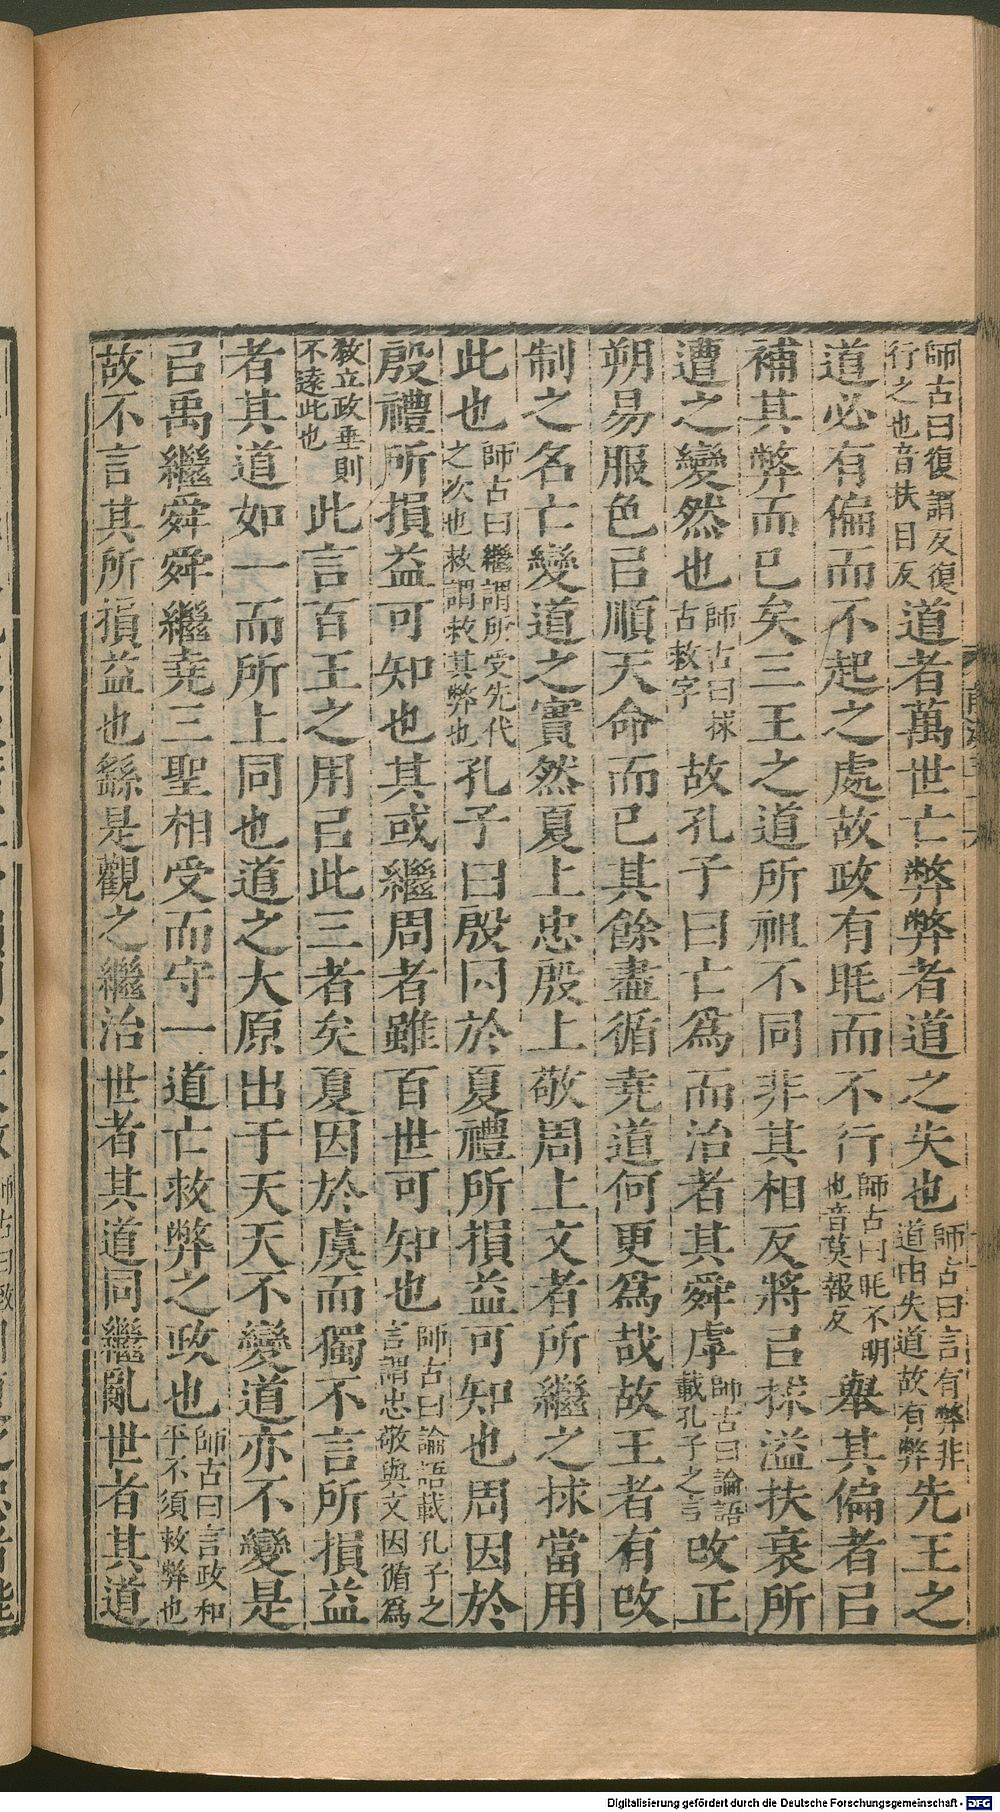 師古曰復謂反復行之也音扶目反道者萬世亡弊弊者道之失也師古曰言有弊非道由失道故有弊先王之
道必有偏而不起之處故政有眊而不行師古曰眊不明也音莫報反舉其偏者㠯
補其弊而已矣三王之道所祖不同非其相反將㠯捄溢扶衰所
遭之變然也師古曰捄古救字故孔子曰亡爲而治者其舜虖師古曰論語載孔子之言改正
朔易服色㠯順天命而已其餘盡循堯道何更爲哉故王者有改
制之名亡變道之實然夏上忠殷上敬周上文者所繼之捄當用
此也師古曰繼謂所受先代之次也救謂救其弊也孔子曰殷因於夏禮所損益可知也周因於
殷禮所損益可知也其或繼周者雖百世可知也師古曰論語載孔子之言謂忠敬與文因循爲
敎立政垂則不遠此也此言百王之用㠯此三者矣夏因於虞而獨不言所損益
者其道如一而所上同也道之大原出于天天不變道亦不變是
㠯禹繼舜舜繼堯三聖相受而守一道亡救弊之政也師古曰言政和平不須救弊也
故不言其所損益也繇是觀之繼治世者其道同繼亂世者其道
Digitalisierung gefördert durch die Deutsche Forschungsgemeinschaft - DFG